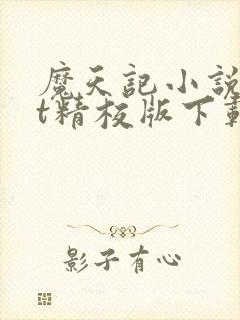 魔天記小說
t精校版下載
影子有心